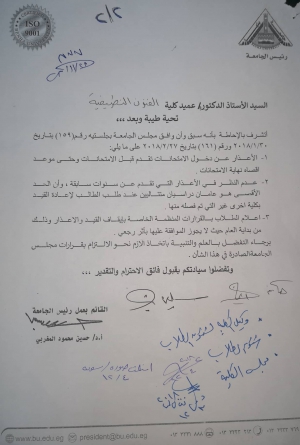 ISO 9001
٢/٢
رئيس الجامعة
السيد الأستاذ الدكتور/ عميد كلية الفنون التطبيقية
تحية طيبة وبعد ،،،
أتشرف بالإحاطة بأنه سبق وأن وافق مجلس الجامعة بجلستيه رقم (١٥٩) بتاريخ
٢٠١٨/١/٣٠ ورقم (١٦١) بتاريخ ٢٠١٨/٢/٢٧ على ما يلي:
١- الإعذار عن دخول الامتحانات تقدم قبل الامتحانات وحتى موعد
أقصاه نهاية الامتحانات.
٢- عدم النظر في الأعذار التي تقدم عن سنوات سابقة ، وأن الحد
الأقصى هو عامان دراسيان متتاليين عند طلب الطالب لإعادة القيد
بكلية أخرى غير التي تم فصله منها.
٣- إعلام الطلاب بالقرارات المنظمة الخاصة بإيقاف القيد والاعذار وذلك
من بداية العام حيث لا يجوز الموافقة عليها بأثر رجعي.
برجاء التفضل بالعلم والتنبيه باتخاذ اللازم نحو الالتزام بقرارات مجلس
الجامعة الصادرة في هذا الشأن.
وتفضلوا سيادتكم بقبول فائق الاحترام والتقدير ...
القائم بعمل رئيس الجامعة
أ.د/ حسين محمود المغربي
وكيل الكلية لشئون الطلاب
شئون الطلاب
مجلس الكلية
www.bu.edu.eg president@bu.edu.eg